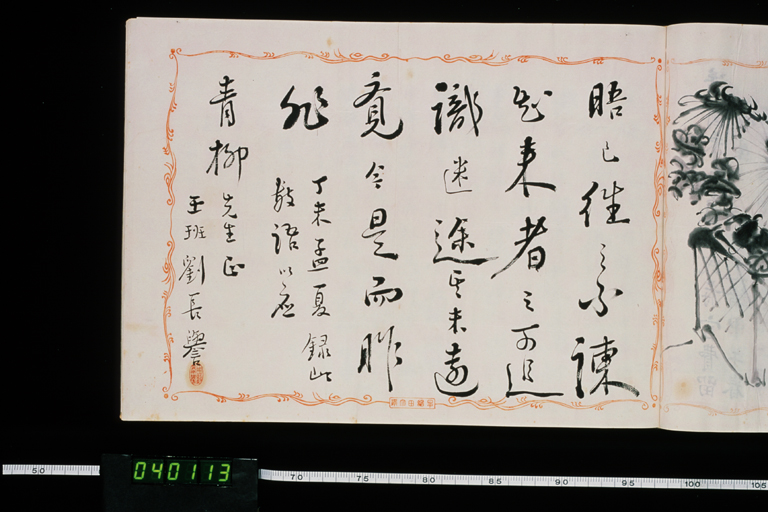 晤已往之不諫
知来者之可追
識迷途其未遠
覚今是而昨
非
丁未孟夏録此
数語以應
青柳先生正
玉班劉長譽
040113
50
70
75
80
85
90
95
100
105